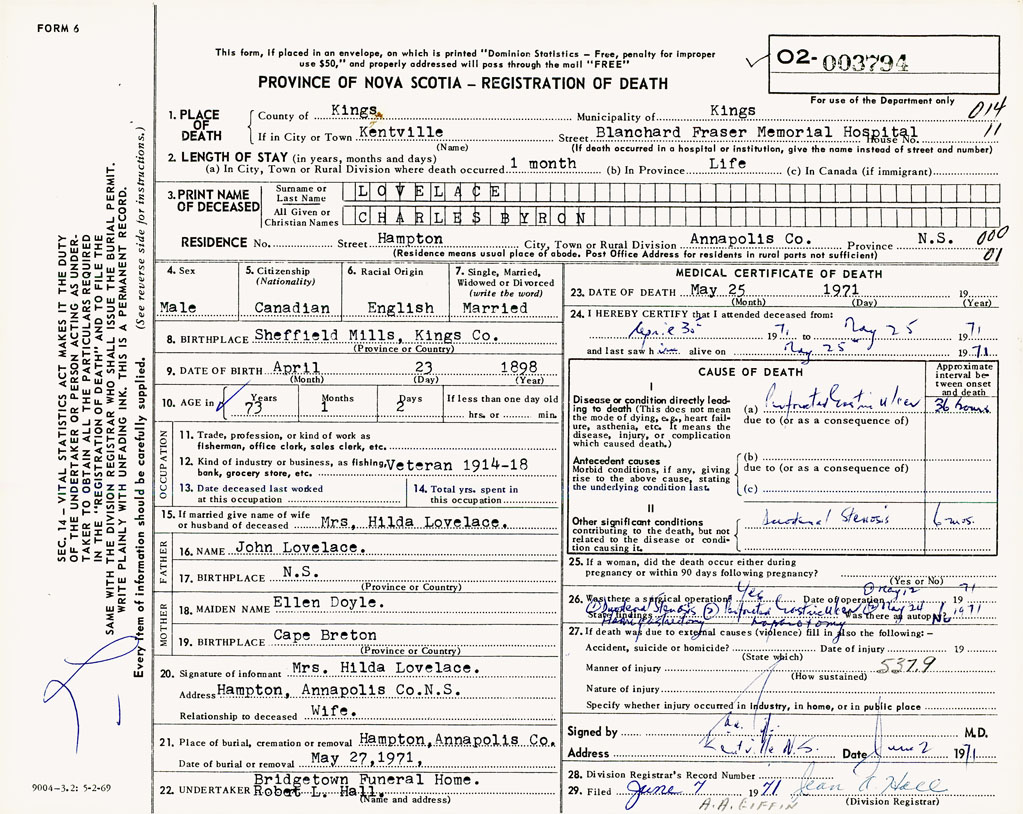 FORM 6
This form, if placed in an envelope, on which is printed "Dominion Statistics — Free, penalty for improper
use $50," and properly addressed will pass through the mail "FREE"
02-003794
For use of the Department only
PROVINCE OF NOVA SCOTIA — REGISTRATION OF DEATH
014
1. PLACE OF DEATH
County of Kings Municipality of Kings
If in City or Town Kentville Street Blanchard Fraser Memorial Hospital House No. 11
(Name) (If death occurred in a hospital or institution, give the name instead of street and number)
2. LENGTH OF STAY (in years, months and days)
(a) In City, Town or Rural Division where death occurred 1 month (b) In Province Life (c) In Canada (if immigrant)
3. PRINT NAME OF DECEASED
Surname or Last Name LOVELACE
All Given or Christian Names CHARLES BYRON
RESIDENCE No. Street Hampton City, Town or Rural Division Annapolis Co. Province N.S. 000
(Residence means usual place of abode. Post Office Address for residents in rural parts not sufficient) 01
4. Sex
Male
5. Citizenship
(Nationality)
Canadian
6. Racial Origin
English
7. Single, Married,
Widowed or Divorced
(write the word)
Married
8. BIRTHPLACE Sheffield Mills, Kings Co.
(Province or Country)
9. DATE OF BIRTH April 23 1898
(Month) (Day) (Year)
10. AGE in Years Months Days If less than one day old
73 1 2 hrs. or min.
OCCUPATION
11. Trade, profession, or kind of work as
fisherman, office clerk, sales clerk, etc.
12. Kind of industry or business, as fishing, Veteran 1914-18
bank, grocery store, etc.
13. Date deceased last worked
at this occupation
14. Total yrs. spent in
this occupation
15. If married give name of wife
or husband of deceased Mrs, Hilda Lovelace.
FATHER
16. NAME John Lovelace.
17. BIRTHPLACE N.S.
(Province or Country)
MOTHER
18. MAIDEN NAME Ellen Doyle.
19. BIRTHPLACE Cape Breton
(Province or Country)
20. Signature of informant Mrs. Hilda Lovelace.
Address Hampton, Annapolis Co.N.S.
Relationship to deceased Wife.
21. Place of burial, cremation or removal Hampton, Annapolis Co.
Date of burial or removal May 27,1971,
Bridgetown Funeral Home.
22. UNDERTAKER Robert L. Hall.
(Name and address)
MEDICAL CERTIFICATE OF DEATH
23. DATE OF DEATH May 25 1971 19
(Month) (Day) (Year)
24. I HEREBY CERTIFY that I attended deceased from:
April 30 1971 to May 25 1971
and last saw him alive on May 25 1971
CAUSE OF DEATH
Approximate
interval be-
tween onset
and death
I
Disease or condition directly lead-
ing to death (This does not mean
the mode of dying, e.g., heart fail-
ure, asthenia, etc. It means the
disease, injury, or complication
which caused death.)
(a) Perforated Gastric Ulcer 36 hours
due to (or as a consequence of)
Antecedent causes
Morbid conditions, if any, giving
rise to the above cause, stating
the underlying condition last.
(b)
due to (or as a consequence of)
(c)
II
Other significant conditions
contributing to the death, but not
related to the disease or condi-
tion causing it.
Duodenal Stenosis 6 mos.
25. If a woman, did the death occur either during
pregnancy or within 90 days following pregnancy?
(Yes or No)
26. Was there a surgical operation? Yes Date of operation May 12 1971
State findings (1) Duodenal Stenosis (2) Perforated Gastric Ulcer (2) May 24 1971
Was there an autopsy? No
Laparotomy
27. If death was due to external causes (violence) fill in also the following: —
Accident, suicide or homicide? Date of injury 19
(State which)
Manner of injury 537.9
(How sustained)
Nature of injury
Specify whether injury occurred in industry, in home, or in public place
Signed by M.D.
Address Kentville N.S. Date June 2 1971
28. Division Registrar's Record Number
29. Filed June 7 1971 Jean D. Hall
(Division Registrar)
A.A. GIFFIN
SEC. 14 — VITAL STATISTICS ACT MAKES IT THE DUTY
OF THE UNDERTAKER OR PERSON ACTING AS UNDER-
TAKER TO OBTAIN ALL THE PARTICULARS REQUIRED
IN THE "REGISTRATION OF DEATH" AND TO FILE THE
SAME WITH THE DIVISION REGISTRAR WHO SHALL ISSUE THE BURIAL PERMIT.
WRITE PLAINLY WITH UNFADING INK. THIS IS A PERMANENT RECORD.
Every item of information should be carefully supplied. (See reverse side for instructions.)
9004-3.2: 5-2-69